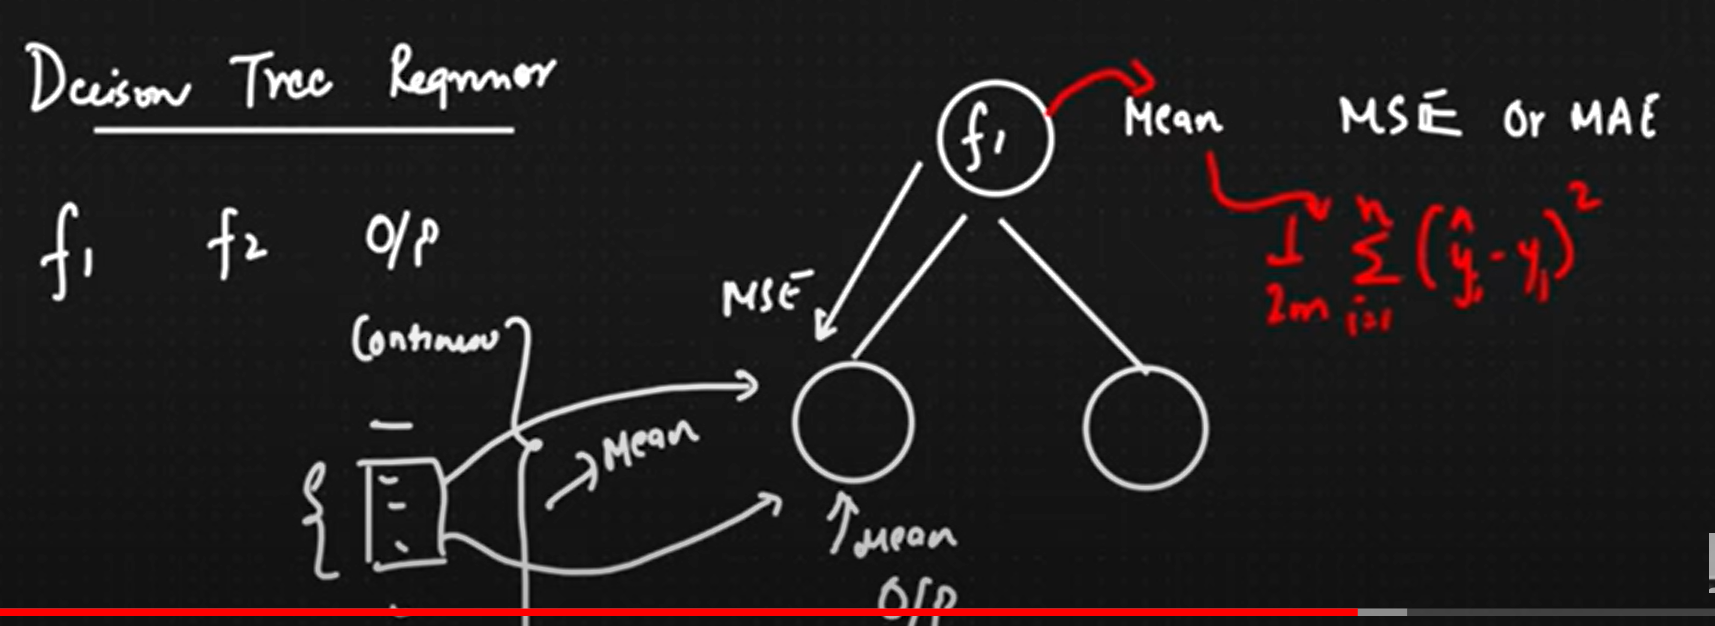 Decison Tree Regressor
f1 f2 O/P
Continuous
Mean
f1
Mean
MSE or MAE
1/2m n Σ i=1 (ŷi - yi)²
MSE
Mean
O/P